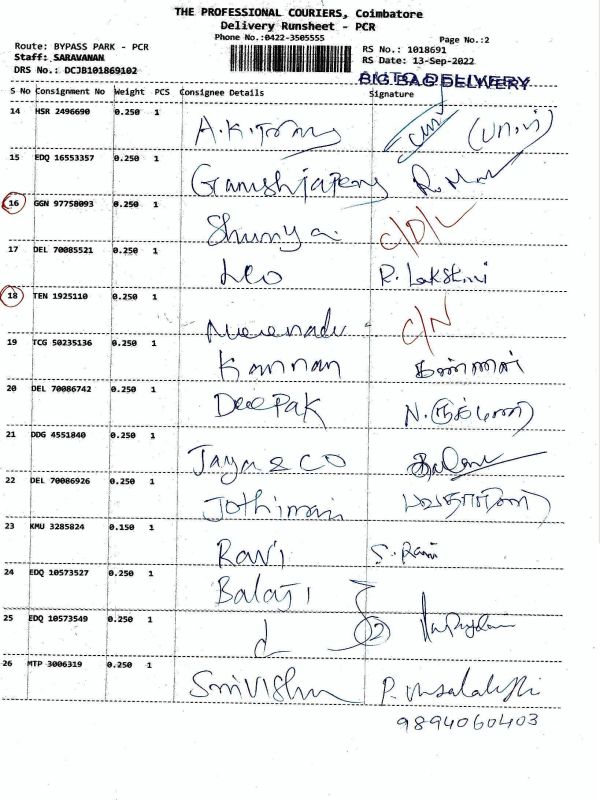 THE PROFESSIONAL COURIERS, Coimbatore
Delivery Runsheet - PCR
Phone No.:0422-3505555
Page No.:2
Route: BYPASS PARK - PCR
RS No.: 1018691
Staff: SARAVANAN
RS Date: 13-Sep-2022
DRS No.: DCJB101869102
BIG BAG DELIVERY
S No Consignment No Weight PCS Consignee Details Signature
14 HSR 2496690 0.250 1 A.K.
15 EDQ 16553357 0.250 1
16 GGN 97758093 0.250 1 Shunya C/D/L
17 DEL 70085521 0.250 1 Leo R. Lakshmi
18 TEN 1925110 0.250 1 C/N
19 TCG 50235136 0.250 1 Kannan
20 DEL 70086742 0.250 1 Deepak
21 DDG 4551840 0.250 1 Jaya & CO
22 DEL 70086926 0.250 1 Jothimani
23 KMU 3285824 0.150 1 Ravi S. Rani
24 EDQ 10573527 0.250 1 Balaji
25 EDQ 10573549 0.250 1
26 MTP 3006319 0.250 1
9894060403